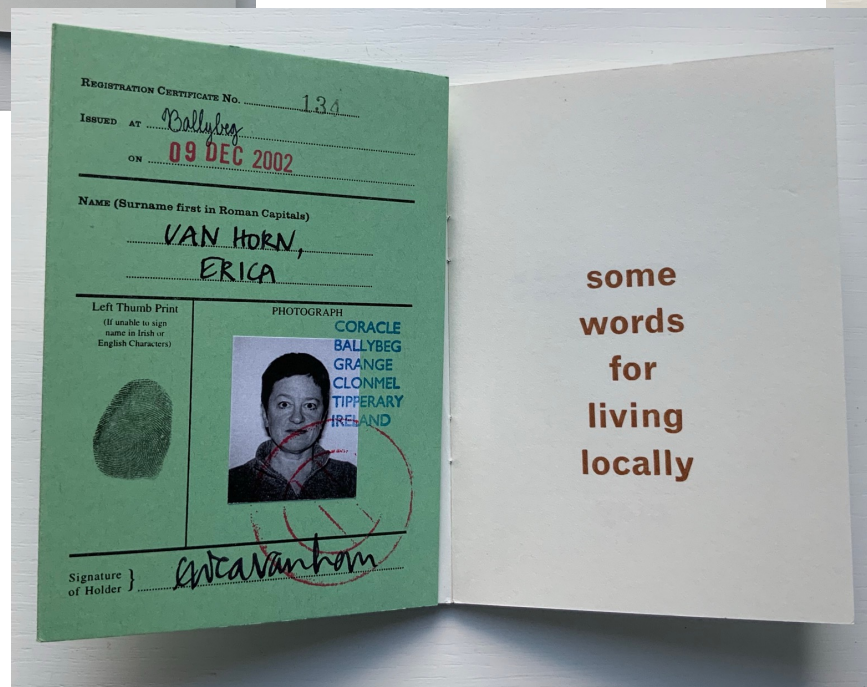 REGISTRATION CERTIFICATE NO. 134
ISSUED AT Ballybeg
ON 09 DEC 2002
NAME (Surname first in Roman Capitals)
VAN HORN,
ERICA
Left Thumb Print
(If unable to sign
name in Irish or
English Characters)
PHOTOGRAPH
CORACLE
BALLYBEG
GRANGE
CLONMEL
TIPPERARY
IRELAND
Signature
of Holder } erica van horn
some
words
for
living
locally